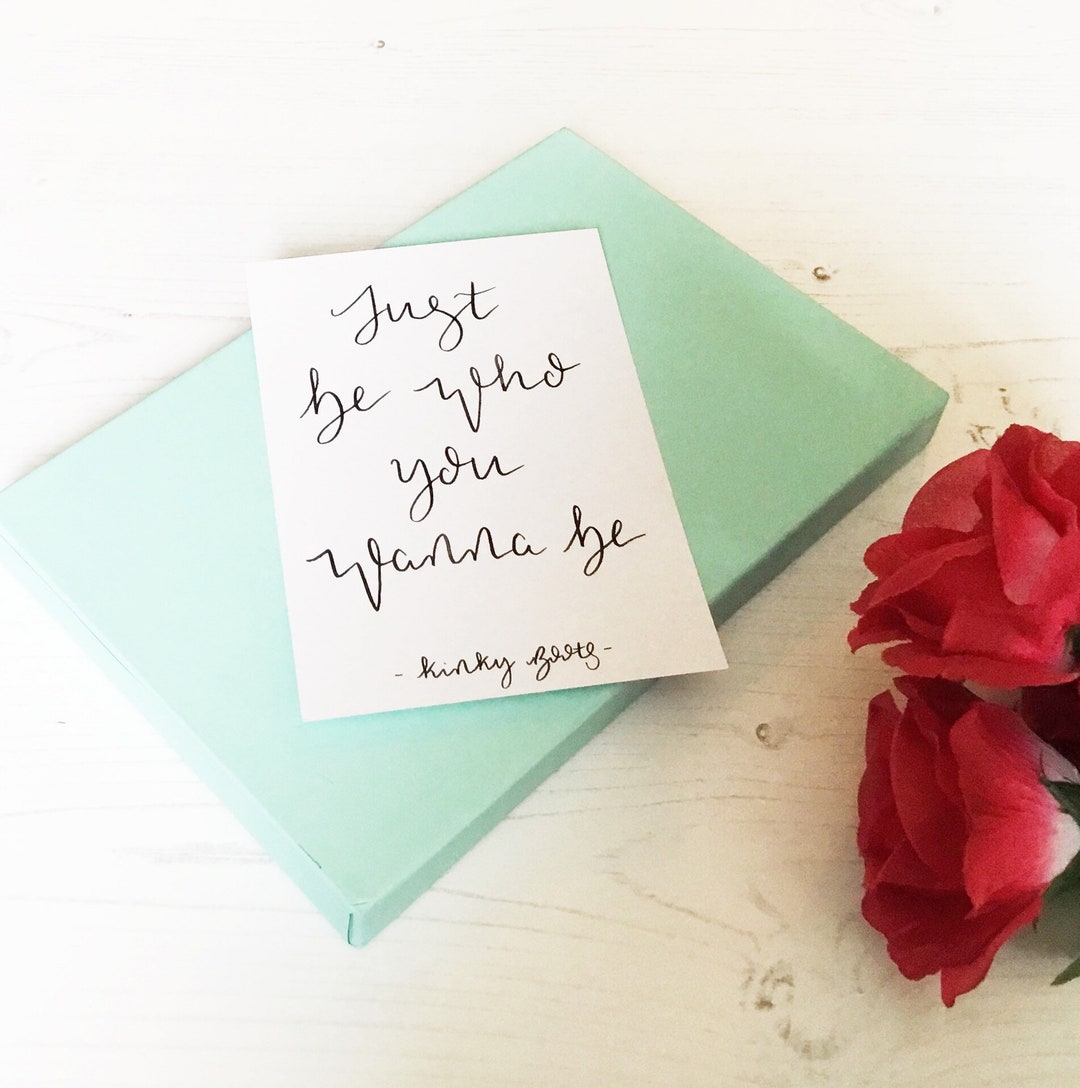 Just
be who
you
wanna be
- Kinky Boots -